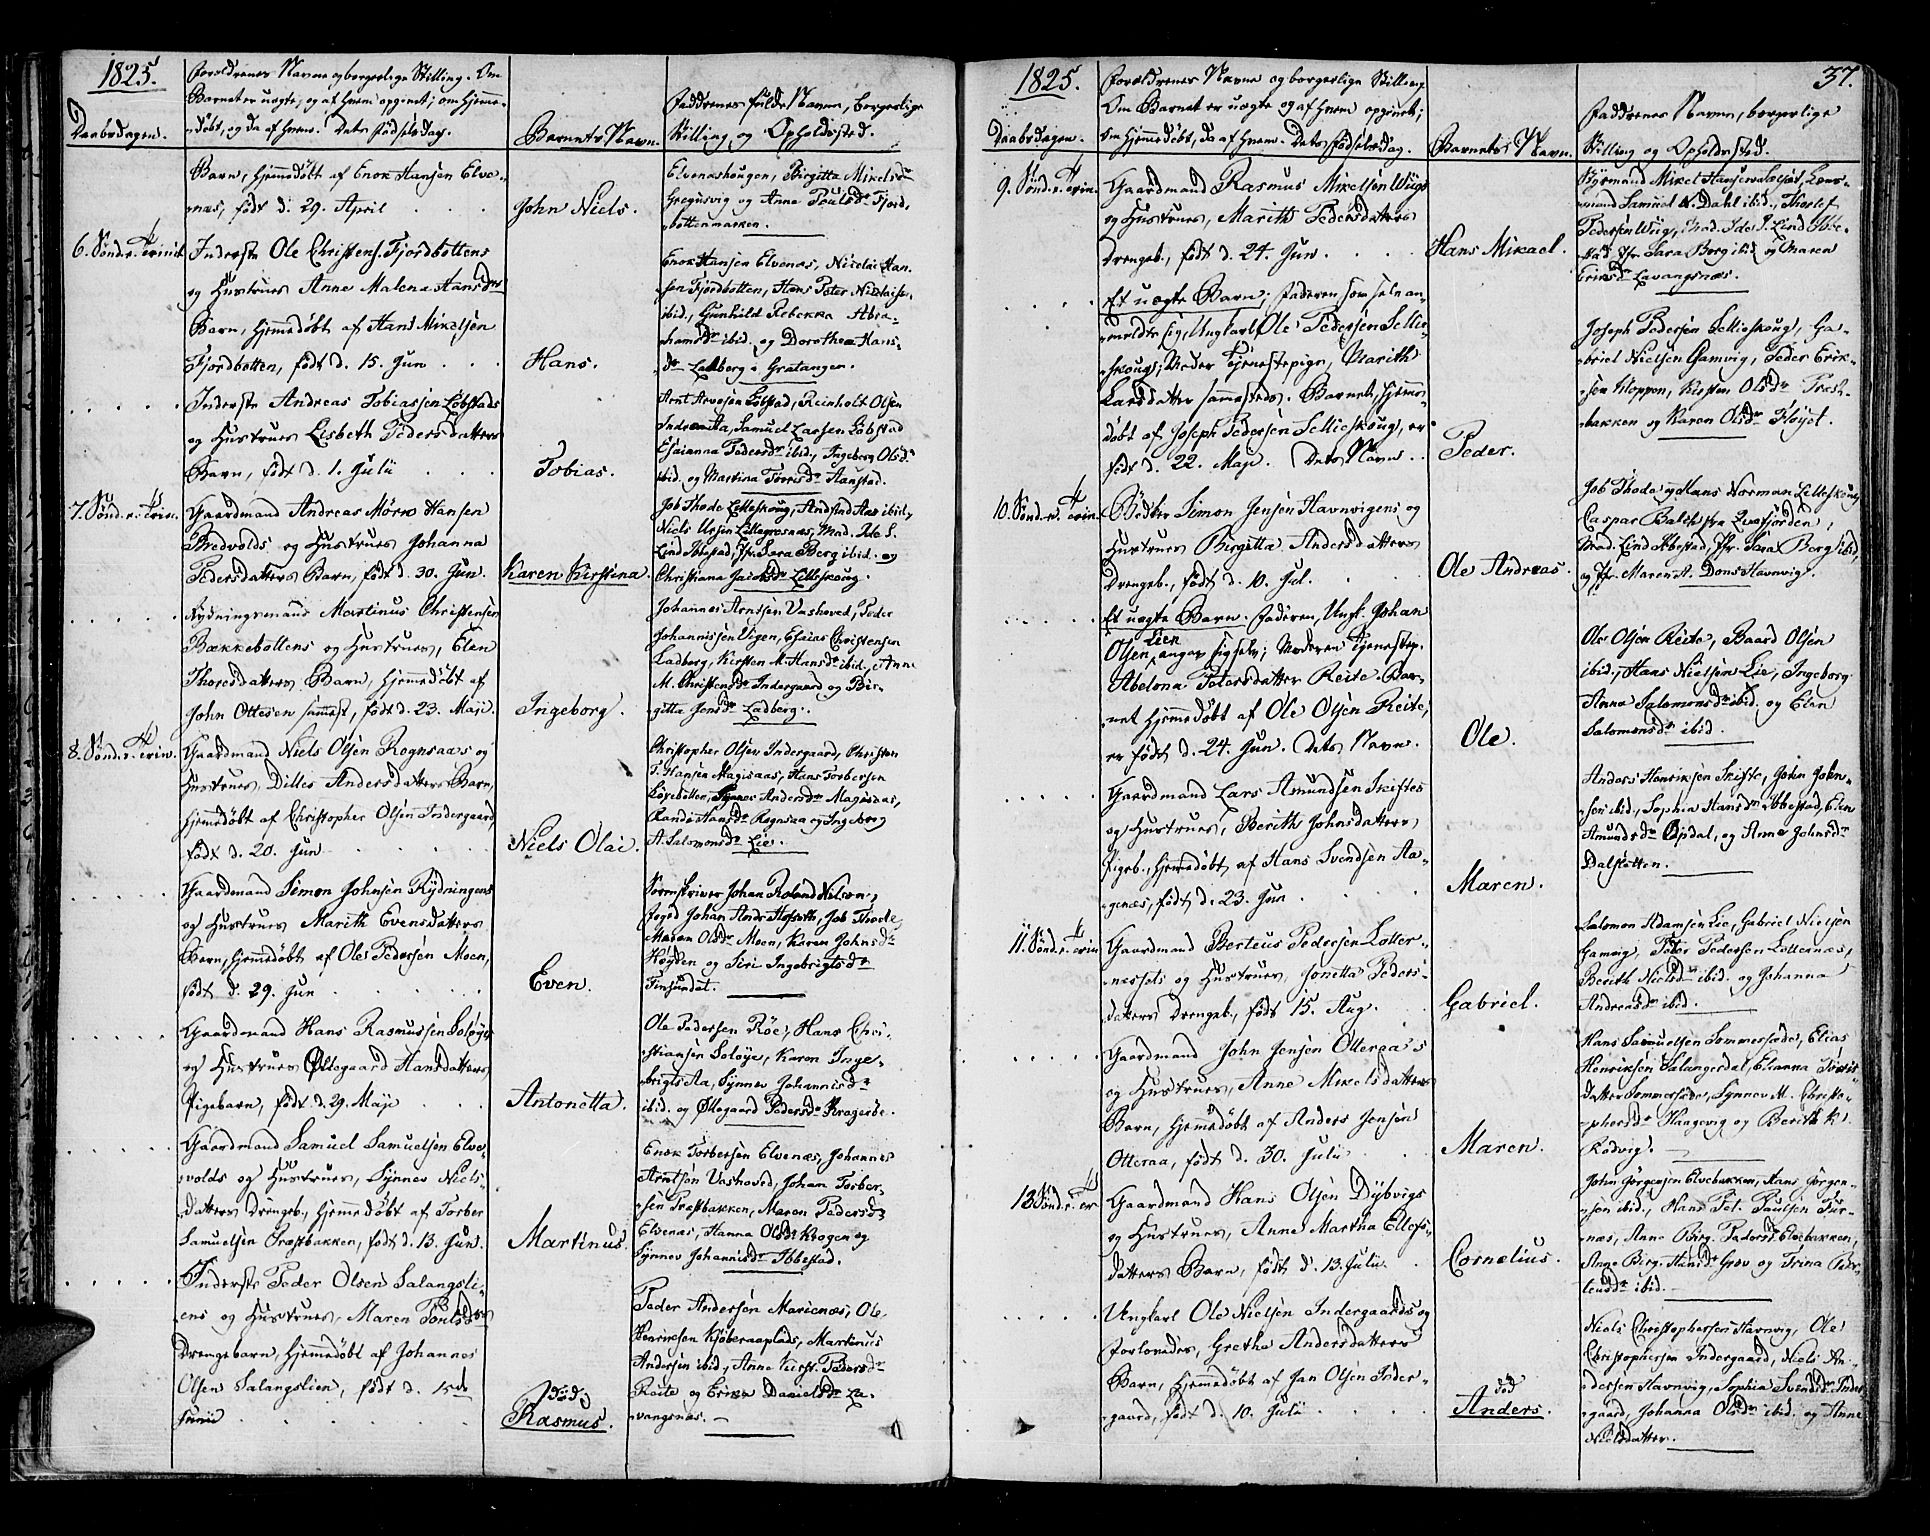 1825.
Daabsdagen.
Forældrenes Navne og borgerlige Stilling. Om
Barnet er uægte, og af hvem opgivet; om hjemme-
døbt, og da af hvem. Dets Fødselsdag.
Barnets Navn.
Faddrenes fulde Navne, borgerlige
Stilling og Opholdssted.
Barn, hjemmedøbt af Enok Hansen Elve-
næs, født d. 29. April
John Niels.
Elvenæshougen, Birgitta Mikelsd.
og Anne Poulsd. Fjord-
bottenmarken.
6. Sønd. e. Trinit.
Inderste Ole Christens. Fjordbottens
og Hustrues Anne Malena Hansdr
Barn, hjemmedøbt af Hans Mikelsen
Fjordbotten, født d. 15. Jun
Hans.
Enok Hansen Elvenæs, Nicolai Han-
sen Fjordbotten, Hans Peter Nicolaisen
ibid., Gunhild Rebekka Abra-
hamsdr ibid. og Dorothea Hans-
dr Ladberg i Gratangen.
Inderste Andreas Tobiassen Løbstads
og Hustrues Lisbeth Pedersdatters
Barn, født d. 1. Julii
Tobias.
Arnt Arnesen Løbstad, Reinholt Olsen
Indre Aa, Samuel Larsen Løbstad
Esaianna Pedersdr ibid., Ingeborg Olsd.
ibid. og Martina Tørrisdr Aanstad.
7. Sønd. e. Trin.
Gaardmand Andreas Mörk Hansen
Bredvolds og Hustrues Johanna
Pedersdatters Barn, født d. 30. Jun.
Karen Kirstina.
Job Thode Lilleskoug, ibid.,
Niels Ursin Mad. Ida S.
Lind Ibbestad, Jfr. Sara Berg ibid. og
Christiana Jacobsdr Lilleskoug.
Rydningsmand Martinus Christensen
Bækkebottens og Hustrues, Elen
Thoresdatters Barn, hjemmedøbt af
John Ottesen sammest, født d. 23. Maje.
Ingeborg.
Johannes Arntsen Vashoved, Peder
Johannissen Vigen, Esaias Christensen
Ladberg, Kirsten M. Hansdr ibid., Anne
M. Christensdr Indergaard og Bir-
gitta Jensdr Ladberg.
8. Sønd. e. Trin.
Gaardmand Niels Olsen Rognsaas og
Hustrues, Dilles Andersdatters Barn,
hjemmedøbt af Christopher Olsen Indergaard,
født d. 20. Jun
Niels Olai.
Christopher Olsen Indergaard, Christen
T. Hansen Magisaas, Hans Torbersen
Synnev Andersdr Magisaas,
Rande Hansdr Rognsaa og Ingeborg
A. Salomonsdr Lie.
Gaardmand Simon Johnsen Rydningens
og Hustrues Marith Evensdatters
Barn, hjemmedøbt af Ole Pedersen Moen,
født d. 29. Jun
Even.
Sorenskriver Johan Roland Nilson,
Foged Johan Andr. Hofseth, Job Thode,
Maren Olsdr Moen, Karen Johnsdr
Høgden og Siri Ingebrigtsdr
Finsundet.
Gaardmand Hans Rasmussen Soløys
og Hustrues Øllegaard Hansdatters
Pigebarn, født d. 29. Maje
Antonetta.
Ole Pedersen Röe, Hans Chri-
stiansen Soløye, Karen Inge-
brigts Aa, Synnev Johannisdr
ibid. og Øllegaard Pedersdr Krageröe.
Gaardmand Samuel Samuelsen Elve-
volds og Hustrues, Synnev Niels-
datters Drengeb., hjemmedøbt af Torber
Samuelsen Præstbakken, født d. 13. Jun.
Martinus.
Enok Torbersen Elvenæs, Johannes
Arntsen Vashoved, Johan Torber-
sen Præstbakken, Maren Pedersdr
Elvenæs, Hanna Olsdr Krogen og
Synnev Johannisdr Ibbestad.
Inderste Peder Olsens Salangsli-
ens og Hustrues, Maren Poulsdrs
Drengebarn, hjemmedøbt af Johannes
Olsen Salangslien, født d. 15de
Junii
død
Rasmus.
Peder Andersen Marienæs, Ole
Henriksen Kjøberaaplads, Martinus
Andersen ibid., Anne Kirst. Pedersdr
Reite og Erika Danielsdr La-
vangsnæs.
1825.
37.
Daabsdagen.
Forældrenes Navne og borgerlige Stilling,
Om Barnet er uægte og af hvem opgivet;
om hjemmedøbt, da af hvem. Dets Fødselsdag.
Barnets Navn.
Faddrenes Navne, borgerlige
Stilling og Opholdssted.
9. Sønd. e. Trin.
Gaardmand Rasmus Mikelsen Wiigs
og Hustrues, Marith Pedersdatters
Drengeb., født d. 24. Jun.
Hans Mikael.
Styrmand Mikel Hansen Lens-
mand Sammuel A. Dahl ibid.,
Pedersen Wiig, Mad. Ida S. Lind Ibbe-
stad Jfr. Sara Berg ibid og Maren
Eriksdr Lavangsnæs.
Et uægte Barn; Faderen som selv an-
meldte sig, Ungkarl Ole Pedersen Lillie-
skoug; Moder Tjenestepige, Marith
Larsdatter sammesteds. Barnet, hjemme-
døbt af Joseph Pedersen Lillieskoug, er
født d. 22. Maje. Dets Navn.
Peder.
Joseph Pedersen Lillieskoug, Ga-
briel Nielsen Gamvig, Peder Erik-
sen Kloppen, Kirsten Olsdr Præst-
bakken og Karen Olsdr Fløyet.
10. Sønd. e. Trin.
Bödker Simon Jensen Havnvigens og
Hustrues Birgitta Andersdatters
Drengeb., født d. 10. Jul.
Ole Andreas.
Job Thode og Hans Norman Lilleskoug
Caspar Balchstra Qvæfjorden,
Mad. Lind Ibbestad, Jfr. Sara Berg ibid,
og Jfr. Maren A. Dons Havnvig.
Et uægte Barn. Faderen, Ungk. Johan
Olsen Lien angav sig selv; Moderen Tjenestep.
Abelona Petersdatter Reite. Bar-
net hjemmedøbt af Ole Olsen Reite,
er født d. 24. Jun. Dets Navn.
Ole.
Ole Olsen Reite, Baard Olsen
ibid., Hans Nielsen Lie, Ingeborg
Anna Salomonsdr ibid. og Elen
Salomonsdr ibid.
Gaardmand Lars Amundsen Skiftes
og Hustrues, Berith Johnsdatters
Pigeb., hjemmedøbt af Hans Svendsen Aa-
genæs, født d. 23. Jun
Maren.
Anders Henriksen Skifte, John John-
sen ibid., Sophia Hansdr Ibbestad, Elen
Amundsdr Opdal, og Anne Johnsdr
Dalsletten.
11. Sønd. e. Trin
Gaardmand Berteus Pedersen Lotter-
næssets og Hustrues, Jonetta Peders-
datters Drengeb., født 15. Aug.
Gabriel.
Salomon Adamsen Lie, Gabriel Nielsen
Gamvig, Peter Pedersen Lotternæs,
Berith Nielsdr ibid. og Johanna
Andreasdr ibid.
Gaardmand John Jensen Otteraa's
og Hustrues, Anne Mikelsdatters
Barn, hjemmedøbt af Anders Jensen
Otteraa, født d. 30. Julii
Maren.
Hans Samuelsen Sommersæde, Elias
Henriksen Salangsdal, Elianna Tørris-
datter Sommersæde, Synnev M. Christo-
phersdr Hangvig og Berith K.
Rodvig.
13 Sønd. e. Tr
Gaardmand Hans Olsen Dybvigs
og Hustrues, Anne Martha Ellefs-
datters Barn, født d. 13. Julii.
Cornelius.
John Jørgensen Elvebakken, Hans Jørgen-
sen ibid., Hans Pet. Paulsen Fur-
næs, Anne Birg. Pedersd. Elvebakken,
Anne Birg. Hansdr Grov og Trina Peder
ibid.
Ungkarl Ole Nielsen Indergaards og
Forlovedes, Grethe Andersdatters
Barn, hjemmedøbt af Jan Olsen Inder-
gaard, født d. 10. Julii
død
Anders.
Niels Christophersen Havnvig, Ole
Christophersen Indergaard, Niels An-
dersen Havnvig, Sophia Svendsdr Inder-
gaard, Johanna Olsdr ibid. og Anne
Nielsdatter.